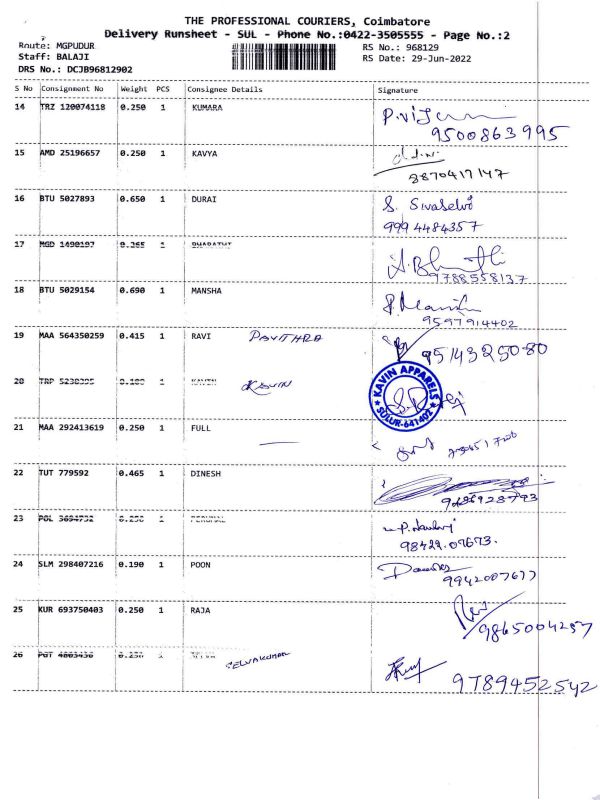 THE PROFESSIONAL COURIERS, Coimbatore
Delivery Runsheet - SUL - Phone No.:0422-3505555 - Page No.:2
Route: MGPUDUR RS No.: 968129
Staff: BALAJI RS Date: 29-Jun-2022
DRS No.: DCJB96812902
S No Consignment No Weight PCS Consignee Details Signature
14 TRZ 120074118 0.250 1 KUMARA
9500863995
15 AMD 25196657 0.250 1 KAVYA
8870417147
16 BTU 5027893 0.650 1 DURAI S. Sivaselvi
999 4484357
17 MGD 1490197 0.365 1 BHARATHI
9788558137
18 BTU 5029154 0.690 1 MANSHA
9597914402
19 MAA 564350259 0.415 1 RAVI PAVITHRA
9514325080
20 TRP 1 KAVIN
KAVIN APPARELS
SULUR-641402
21 MAA 292413619 0.250 1 FULL
22 TUT 779592 0.465 1 DINESH
23 POL 1 PERUMAL
98422.07673.
24 SLM 298407216 0.190 1 POON
9942007677
25 KUR 693750403 0.250 1 RAJA
9865004257
26 PGT 1 SELVAKUMAR
9789452542